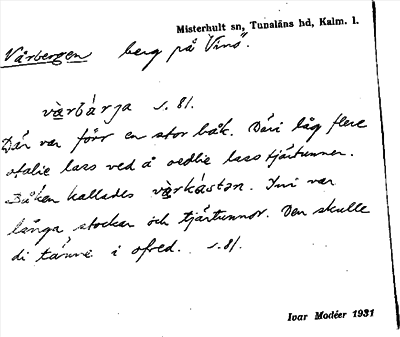 Misterhult sn, Tunaläns hd, Kalm. l.
Vårbergen berg på "Vinö".
vàrbárja s. 81.
Där var förr en stor båk. Däri låg flere
otalie lass ved å oedlie lass tjärtunner.
Båken kallades vàrkástən. Inri var
långa stockar och tjärtunnor. Den skulle
di tänne i ofred. s. 81.
Ivar Modéer 1931